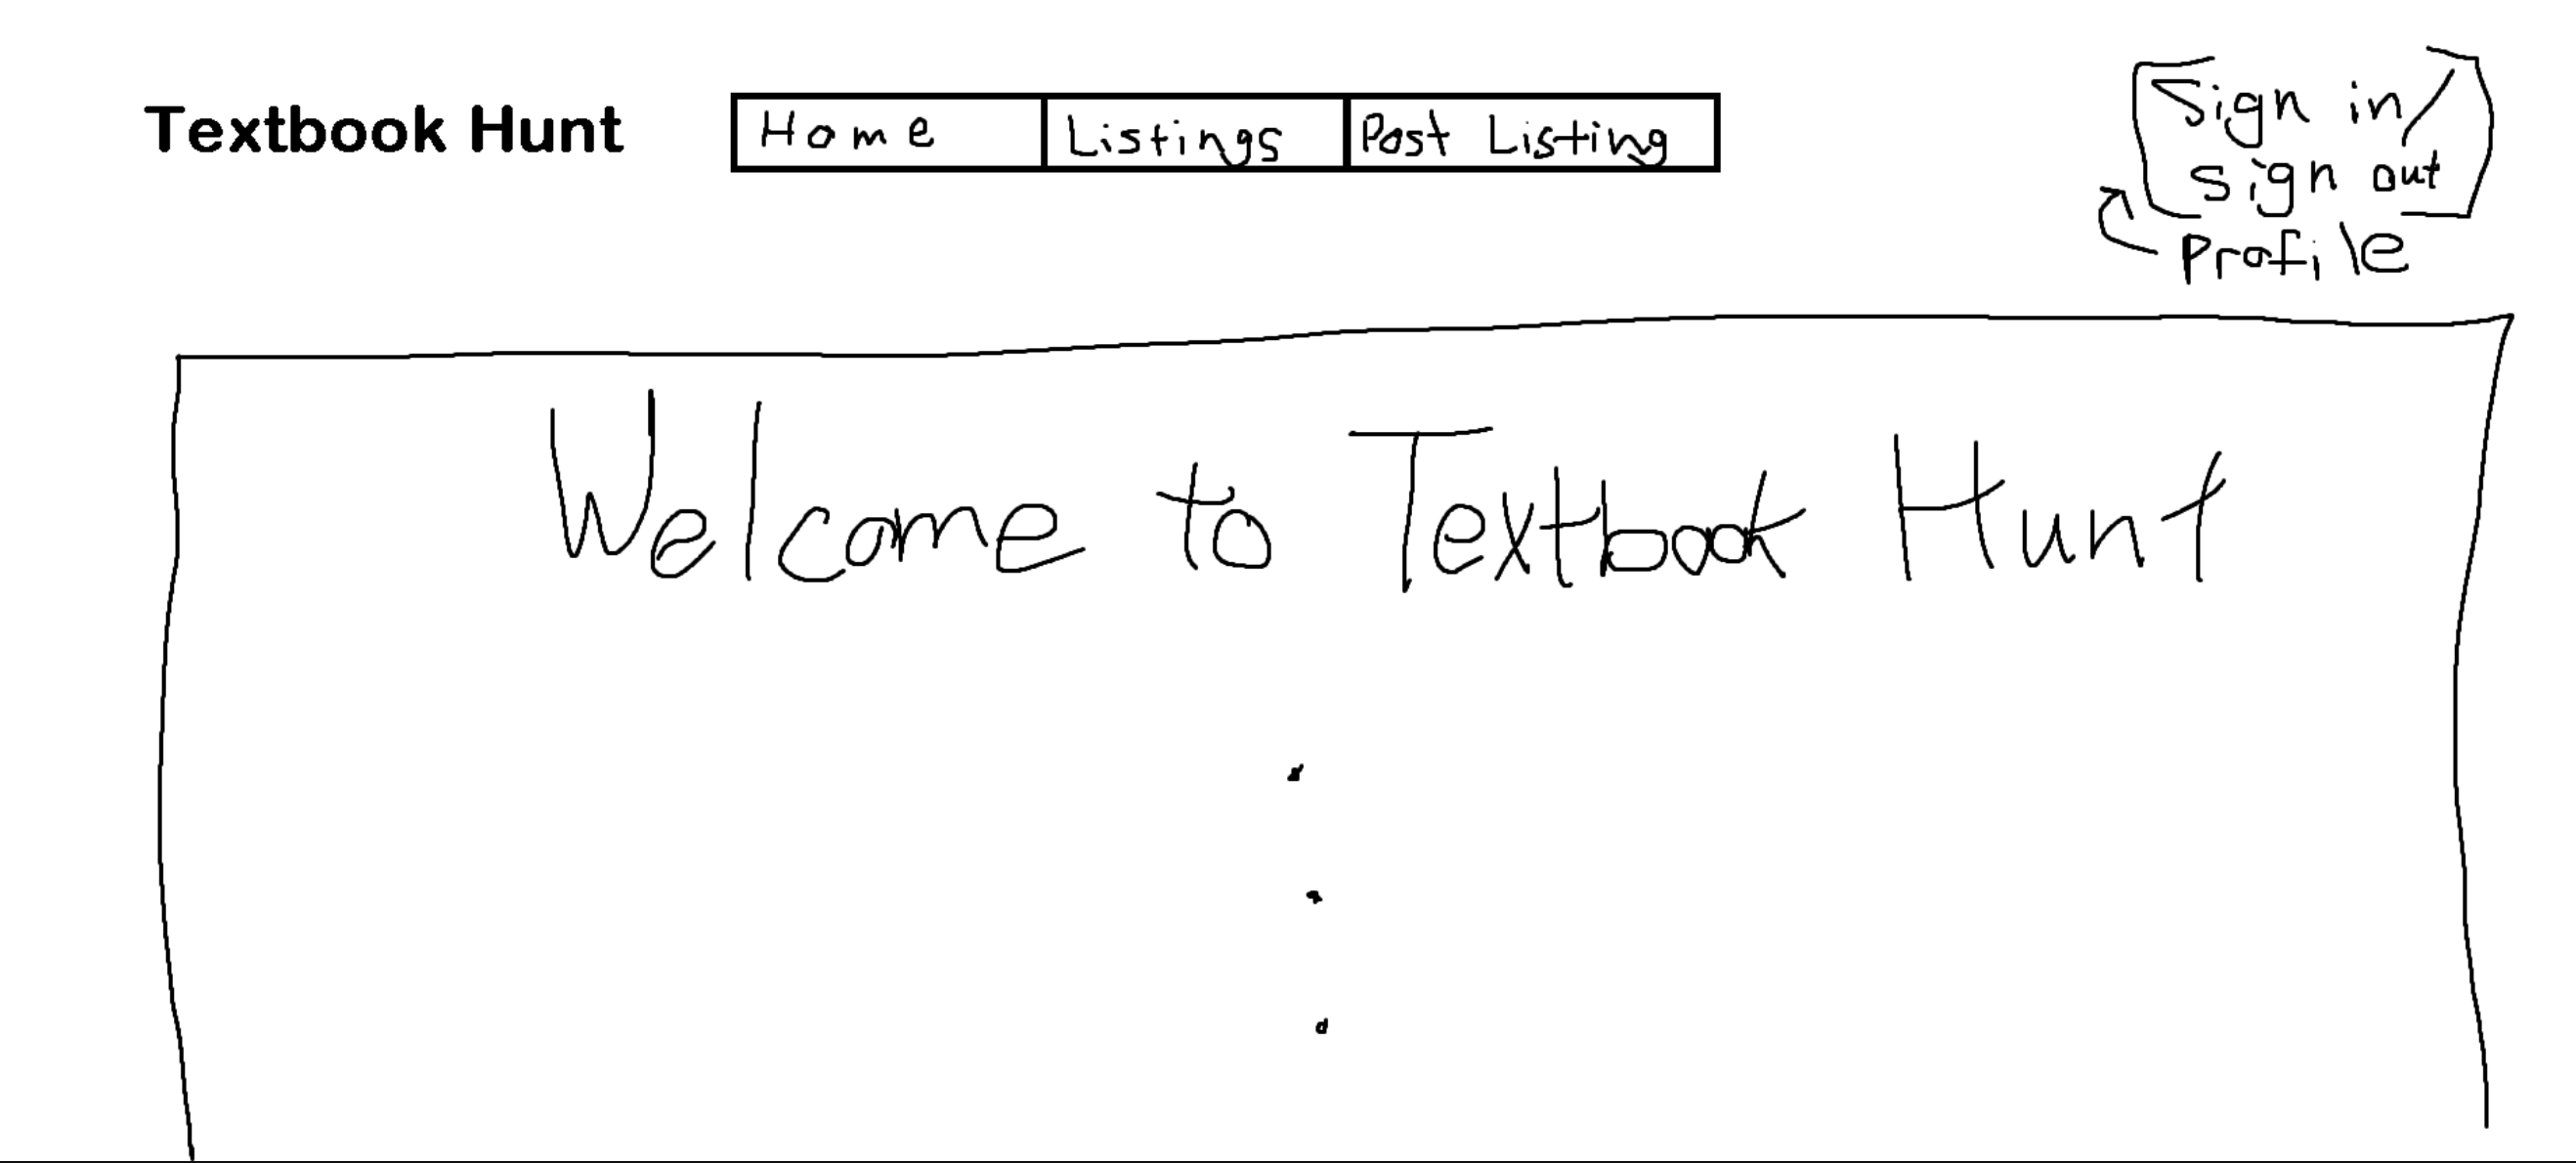 Textbook Hunt
Home
Listings
Post Listing
Sign in/
sign out
Profile
Welcome to Textbook Hunt